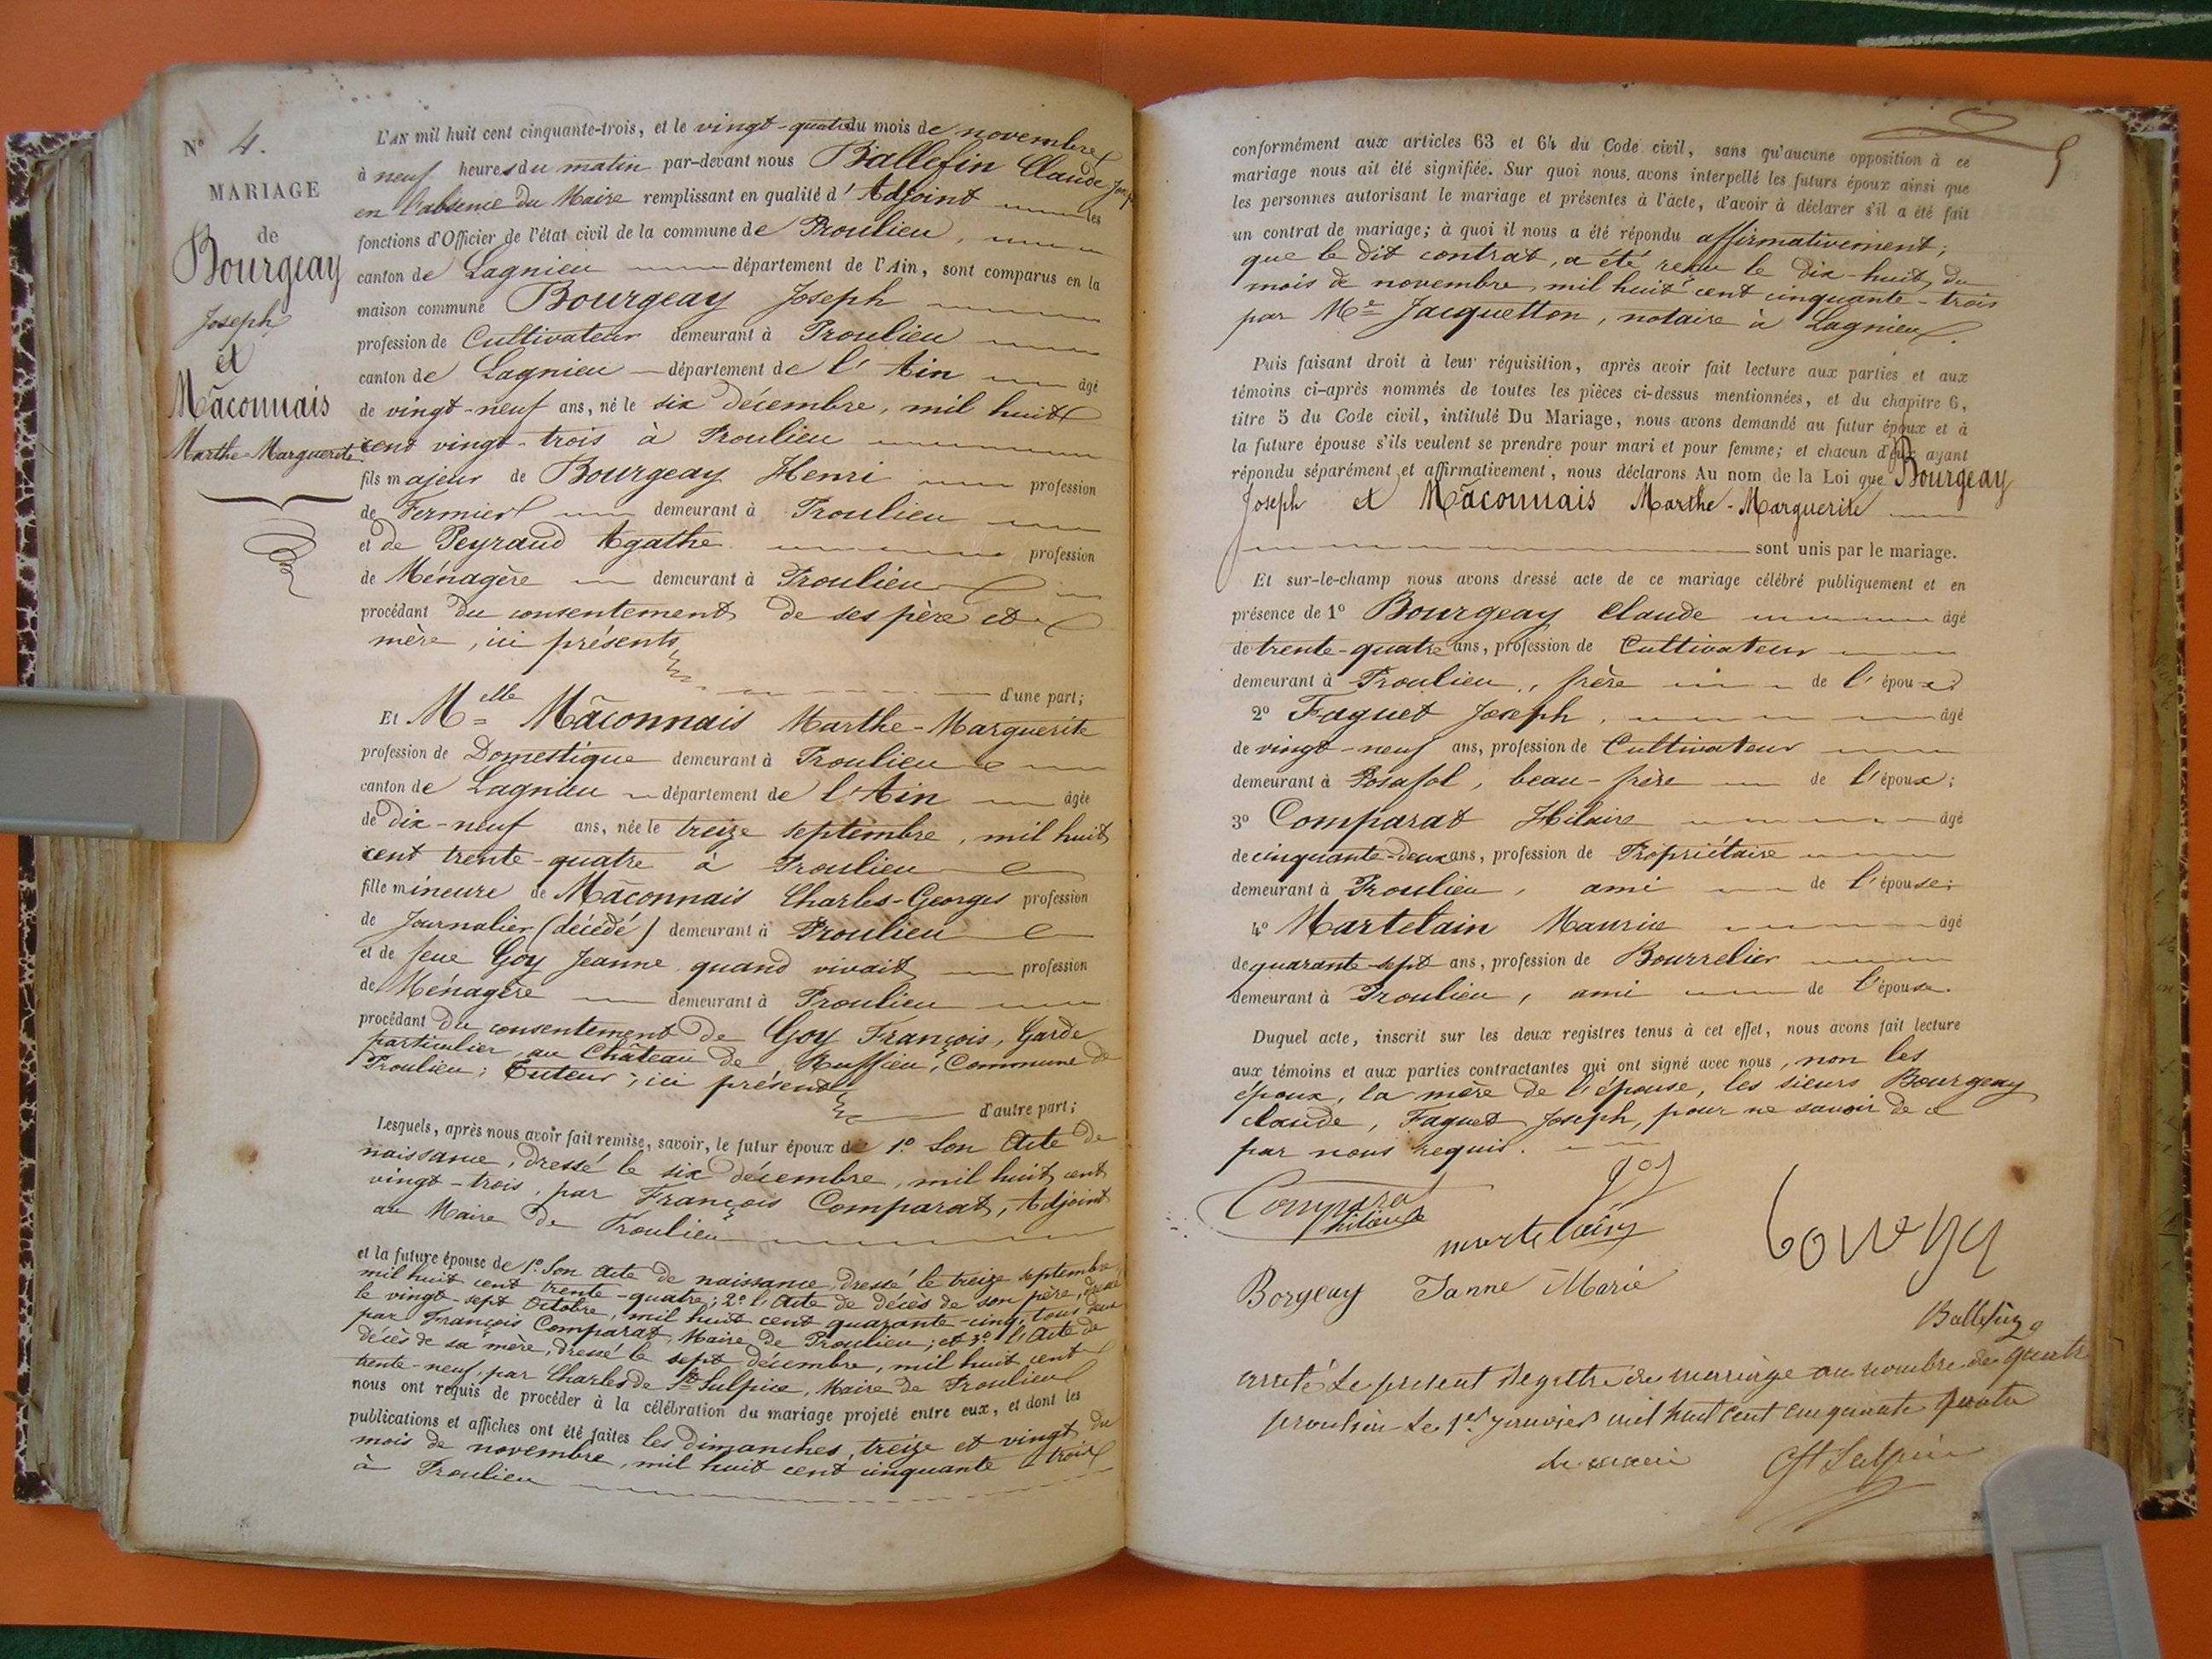 N° 4.
MARIAGE
de
Bourgeay
Joseph
et
Mâconnais
Marthe-Marguerite
L'AN mil huit cent cinquante-trois, et le vingt-quatre du mois de novembre
à neuf heures du matin par-devant nous Ballefin Claude
en l'absence du Maire remplissant en qualité d'Adjoint les
fonctions d'Officier de l'état civil de la commune de Proulieu,
canton de Lagnieu département de l'Ain, sont comparus en la
maison commune Bourgeay Joseph
profession de Cultivateur demeurant à Proulieu
canton de Lagnieu département de l'Ain âgé
de vingt-neuf ans, né le six décembre, mil huit
cent vingt-trois à Proulieu
fils majeur de Bourgeay Henri profession
de Fermier demeurant à Proulieu
et de Peyraud Agathe profession
de Ménagère demeurant à Proulieu
procédant du consentement de ses père et
mère, ici présents
d'une part;
Et Melle Mâconnais Marthe-Marguerite
profession de Domestique demeurant à Proulieu
canton de Lagnieu département de l'Ain âgée
de dix-neuf ans, née le treize septembre, mil huit
cent trente-quatre à Proulieu
fille mineure de Mâconnais Charles-Georges profession
de Journalier (décédé) demeurant à Proulieu
et de feue Goy Jeanne quand vivait profession
de Ménagère demeurant à Proulieu
procédant du consentement de Goy François, Garde
particulier, au Château de Ruffieu, Commune de
Proulieu; Tuteur, ici présent
d'autre part;
Lesquels, après nous avoir fait remise, savoir, le futur époux de 1.° Son Acte de
naissance, dressé le six décembre, mil huit cent
vingt-trois, par François Comparat, Adjoint
au Maire de Proulieu
et la future épouse de 1.° Son Acte de naissance, dressé le treize septembre,
mil huit cent trente-quatre; 2.° l'Acte de décès de son père, dressé
le vingt-sept Octobre, mil huit cent quarante-cinq, tous deux
par François Comparat, Maire de Proulieu; et 3.° l'Acte de
décès de sa mère, dressé le sept décembre, mil huit cent
trente-neuf, par Charles de St Sulpice, Maire de Proulieu
nous ont requis de procéder à la célébration du mariage projeté entre eux, et dont les
publications et affiches ont été faites les dimanches, treize et vingt du
mois de novembre, mil huit cent cinquante-trois
à Proulieu
5
conformément aux articles 63 et 64 du Code civil, sans qu'aucune opposition à ce
mariage nous ait été signifiée. Sur quoi nous avons interpellé les futurs époux ainsi que
les personnes autorisant le mariage et présentes à l'acte, d'avoir à déclarer s'il a été fait
un contrat de mariage; à quoi il nous a été répondu affirmativement;
que le dit contrat, a été reçu le dix-huit du
mois de novembre, mil huit cent cinquante-trois
par Me Jacquetton, notaire à Lagnieu.
Puis faisant droit à leur réquisition, après avoir fait lecture aux parties et aux
témoins ci-après nommés de toutes les pièces ci-dessus mentionnées, et du chapitre 6,
titre 5 du Code civil, intitulé Du Mariage, nous avons demandé au futur époux et à
la future épouse s'ils veulent se prendre pour mari et pour femme; et chacun d'eux ayant
répondu séparément et affirmativement, nous déclarons Au nom de la Loi que Bourgeay
Joseph et Mâconnais Marthe-Marguerite
sont unis par le mariage.
Et sur-le-champ nous avons dressé acte de ce mariage célébré publiquement et en
présence de 1° Bourgeay Claude âgé
de trente-quatre ans, profession de Cultivateur
demeurant à Proulieu, frère de l'époux;
2° Faguet Joseph, âgé
de vingt-neuf ans, profession de Cultivateur
demeurant à Posafol, beau-frère de l'époux;
3° Comparat Hilaire âgé
de cinquante-deux ans, profession de Propriétaire
demeurant à Proulieu, ami de l'épouse;
4° Martelain Maurice âgé
de quarante-sept ans, profession de Bourrelier
demeurant à Proulieu, ami de l'épouse.
Duquel acte, inscrit sur les deux registres tenus à cet effet, nous avons fait lecture
aux témoins et aux parties contractantes qui ont signé avec nous, non les
époux, la mère de l'épouse, les sieurs Bourgeay
Claude, Faguet Joseph, pour ne savoir de ce
par nous requis.
Comparat goy
hilaire
martelain
Borgeay Janne Marie
Ballefin
arreté Le present Registre de mariage au nombre de quatre
proulieu le 1er janvier mil huit cent cinquante quatre
le maire Ch St Sulpice